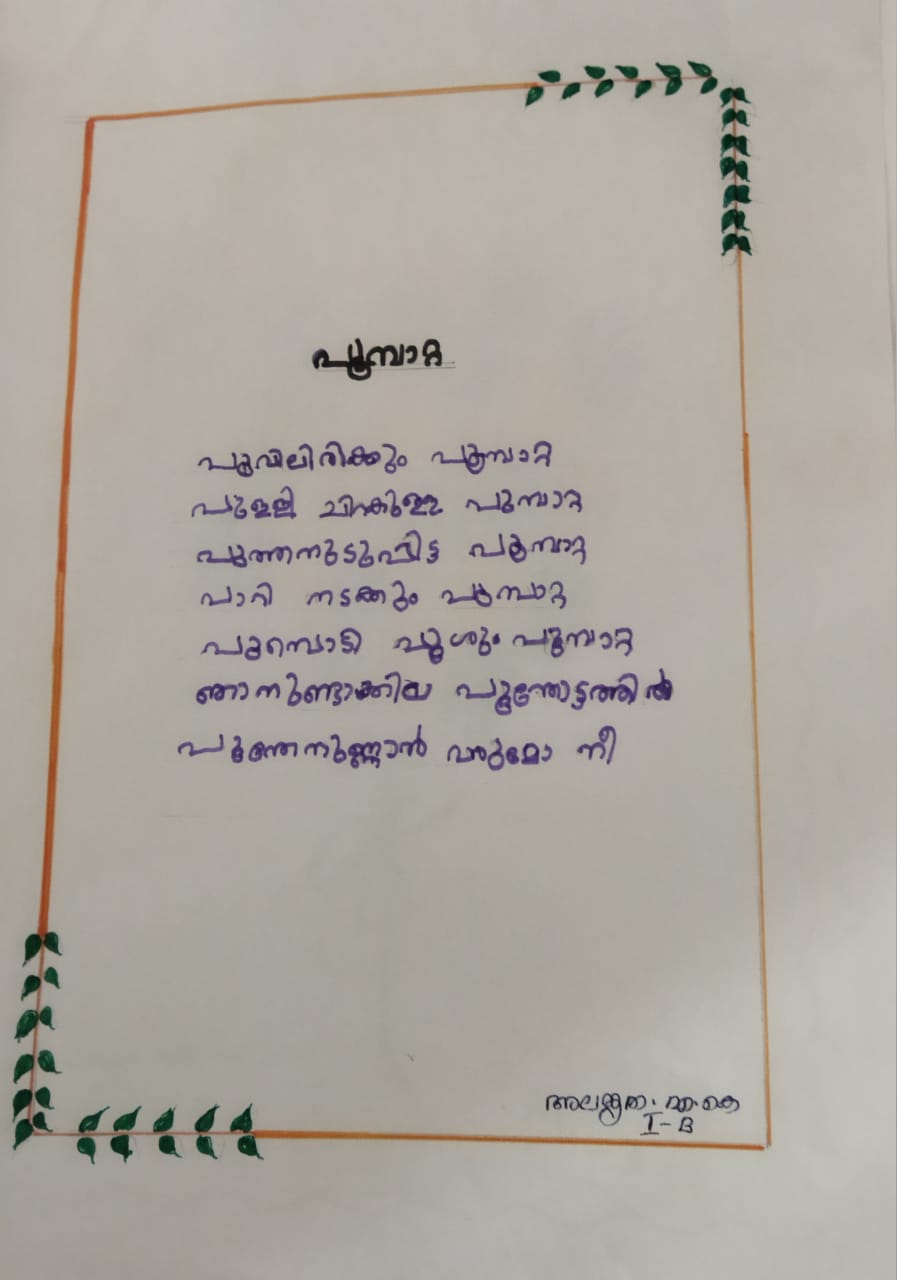 പൂമ്പാറ്റ
പൂവിലിരിക്കും പൂമ്പാറ്റ
പുള്ളി ചിറകുള്ള പൂമ്പാറ്റ
പുത്തനുടുപ്പിട്ട പൂമ്പാറ്റ
പാറി നടക്കും പൂമ്പാറ്റ
പൂമ്പൊടി പൂശും പൂമ്പാറ്റ
ഞാനുണ്ടാക്കിയ പൂന്തോട്ടത്തിൽ
പൂന്തേനുണ്ണാൻ വരുമോ നീ
I-B